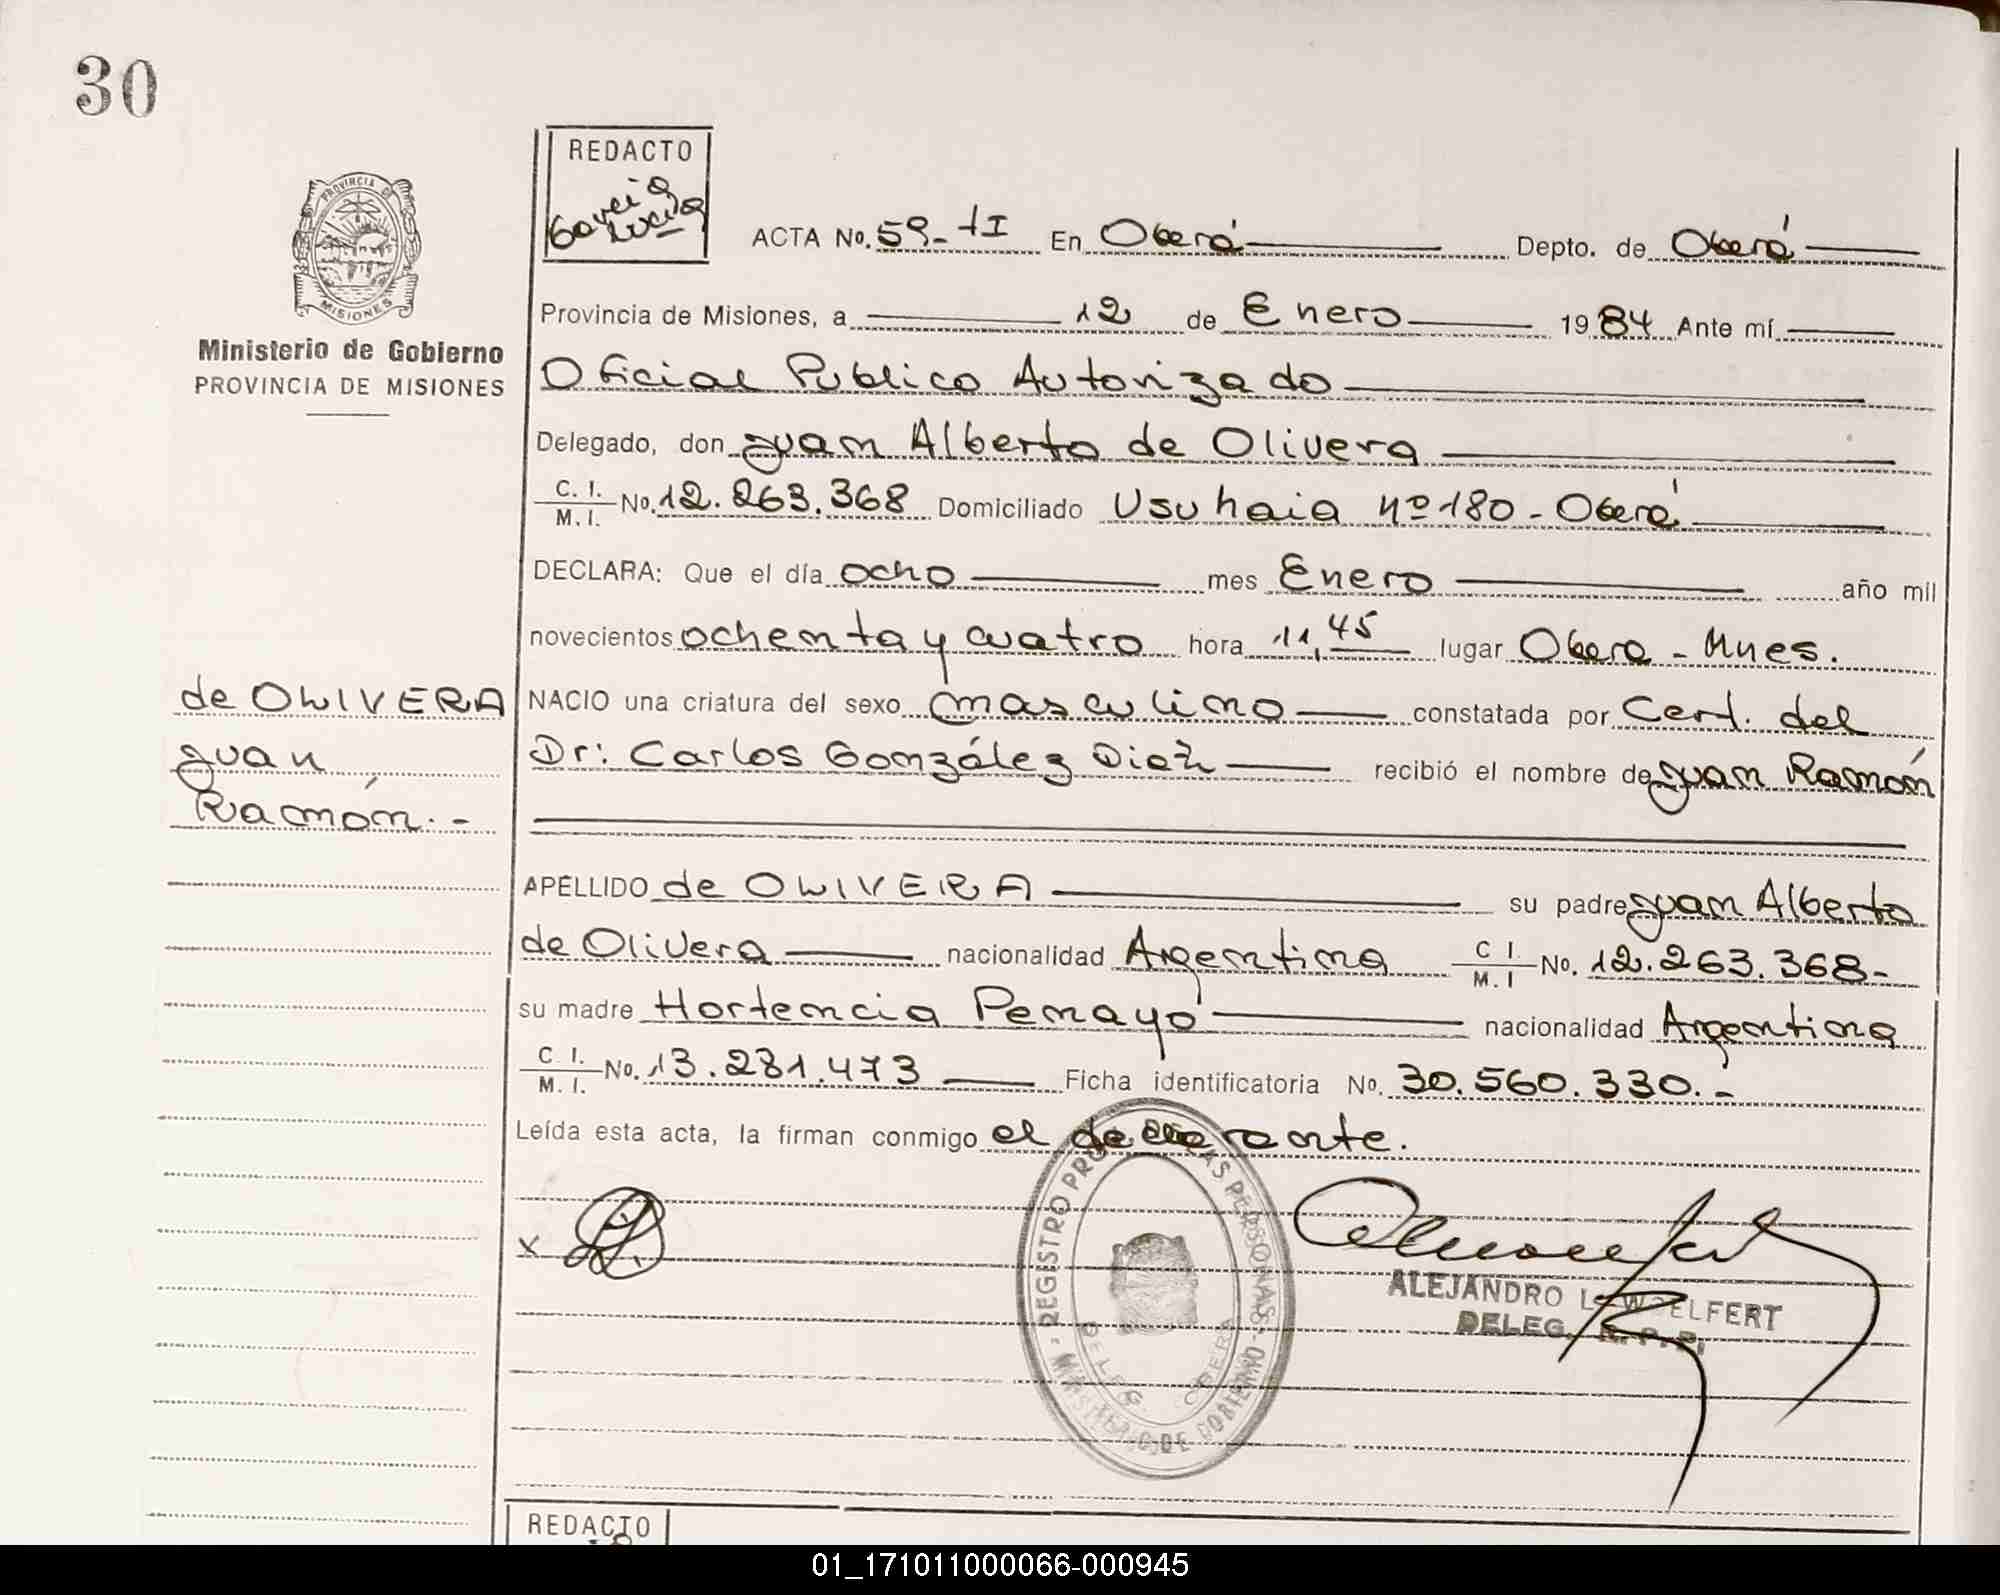 30
REDACTO
García
Lucía
ACTA No. 59-tI En Oberá Depto. de Oberá
PROVINCIA DE
MISIONES
Ministerio de Gobierno
PROVINCIA DE MISIONES
Provincia de Misiones, a 12 de Enero 1984 Ante mí
Oficial Publico Autorizado
Delegado, don Juan Alberto de Olivera
C. I. / M. I. No. 12.263.368 Domiciliado Usuhaia nº 180 - Oberá
DECLARA: Que el día ocho mes Enero año mil
novecientos ochenta y cuatro hora 11,45 lugar Obera - Mnes.
de OLIVERA
Juan
Ramón.-
NACIO una criatura del sexo masculino constatada por Cert. del
Dr: Carlos González Diaz recibió el nombre de Juan Ramón
APELLIDO de OLIVERA su padre Juan Alberto
de Olivera nacionalidad Argentina C I. / M. I No. 12.263.368-
su madre Hortencia Penayo nacionalidad Argentina
C I. / M. I. No. 13.281.473 Ficha identificatoria No. 30.560.330.-
Leída esta acta, la firman conmigo el declarante.
x
REGISTRO PRO AS PERSONAS
DELEG OBERA
MINISTERIO DE GOBIERNO
ALEJANDRO L. WOELFERT
DELEG. R. P. P.
REDACTO
01_171011000066-000945